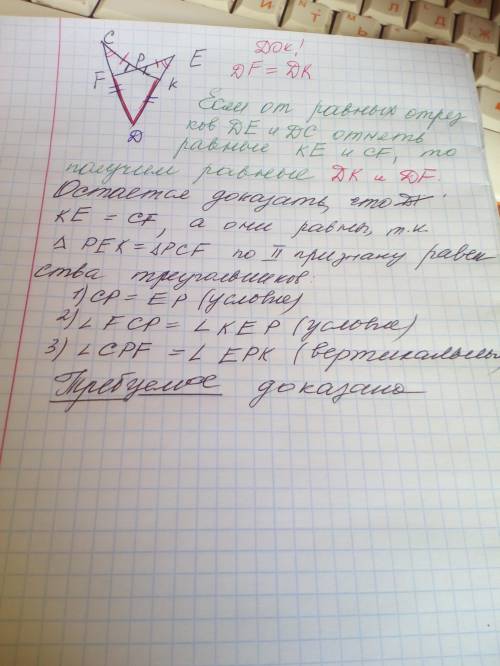 C
P
E
F
K
D
Док!
DF = DK
Если от равных отрез
ков DE и DC отнять
равные KE и CF, то
получим равные DK и DF.
Остается доказать, что
KE = CF, а они равны, т.к
Δ PEK = ΔPCF по II признаку равен
ства треугольников:
1) CP = EP (условие)
2) ∠ FCP = ∠ KEP (условие)
3) ∠ CPF = ∠ EPK (вертикальные
Требуемое доказано